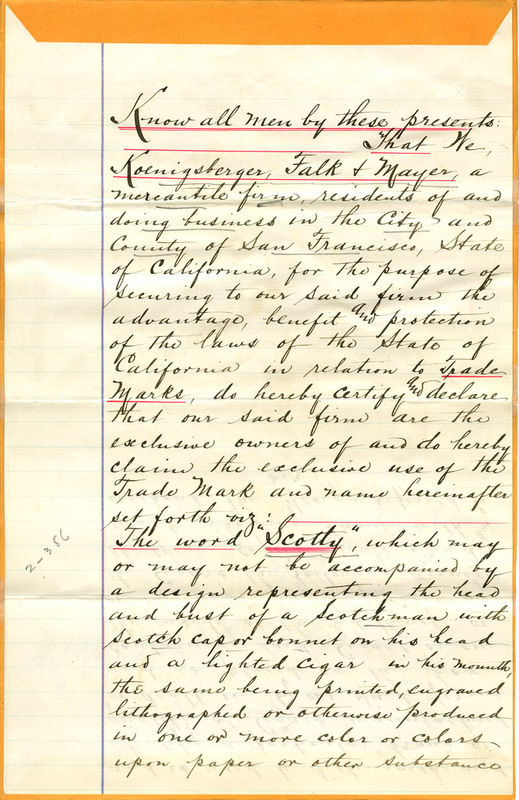 Know all men by these presents:
That We,
Koenigsberger, Falk & Mayer, a
mercantile firm, residents of and
doing business in the City and
County of San Francisco, State
of California, for the purpose of
securing to our said firm the
advantage, benefit and protection
of the laws of the State of
California in relation to Trade
Marks, do hereby certify and declare
that our said firm are the
exclusive owners of and do hereby
claim the exclusive use of the
Trade Mark and name hereinafter
set forth viz:
The word "Scotty", which may
or may not be accompanied by
a design representing the head
and bust of a Scotchman with
Scotch cap or bonnet on his head
and a lighted cigar in his mounth,
the same being printed, engraved
lithographed or otherwise produced
in one or more color or colors
upon paper or other substance